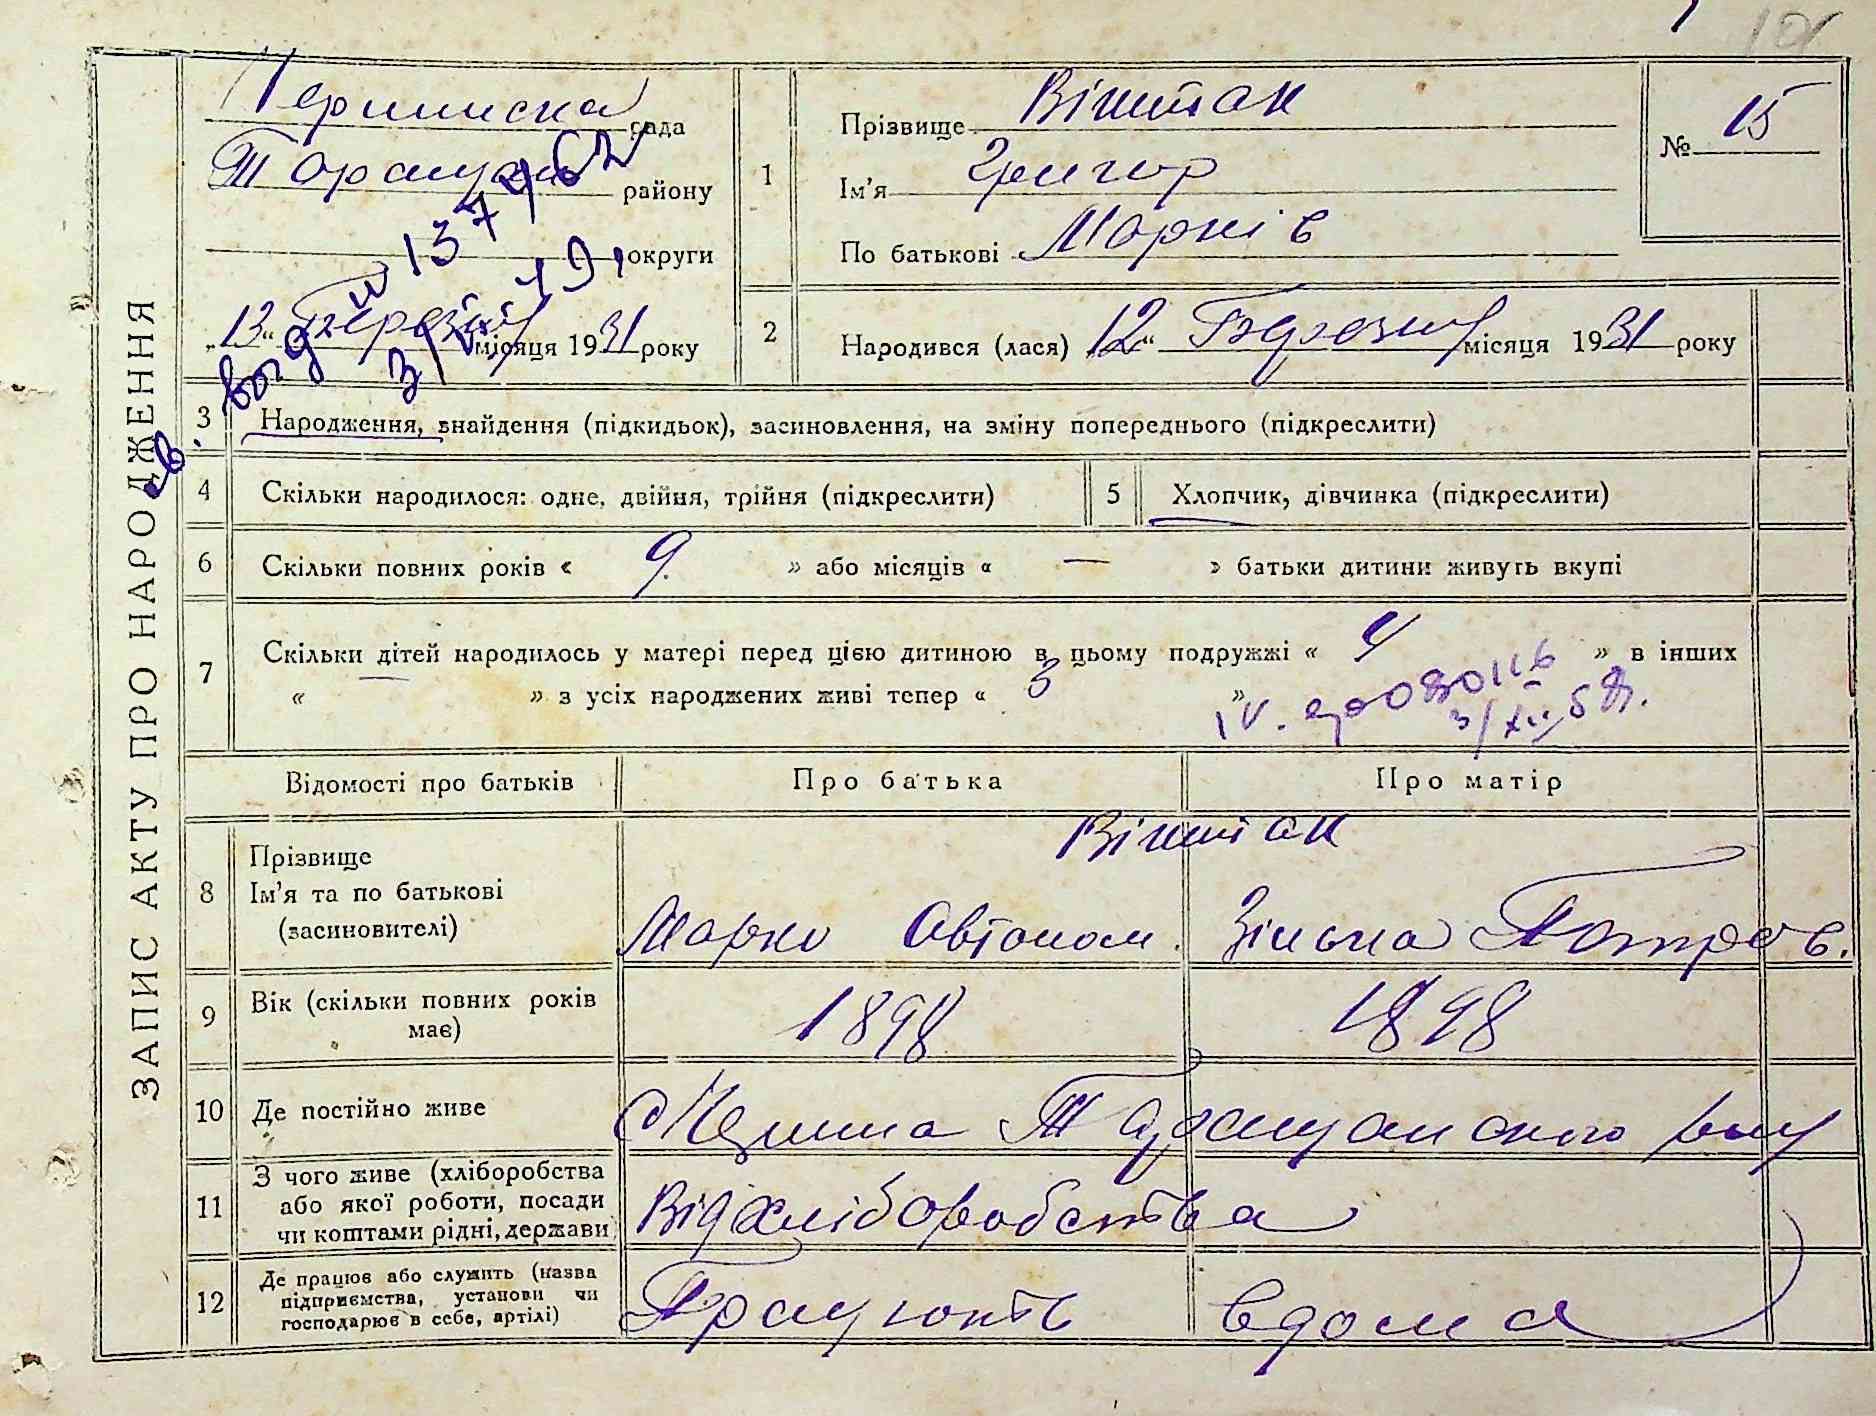 ЗАПИС АКТУ ПРО НАРОДЖЕННЯ
рада
району
округи
„13“ Березня місяця 1931 року
1
Прізвище Вінштак
Ім'я Григор
По батькові Марків
№ 15
2
Народився (лася) „12“ Березня місяця 1931 року
3 Народження, знайдення (підкидьок), засиновлення, на зміну попереднього (підкреслити)
4 Скільки народилося: одне, двійня, трійня (підкреслити)
5 Хлопчик, дівчинка (підкреслити)
6 Скільки повних років « 9 » або місяців « — » батьки дитини живуть вкупі
7 Скільки дітей народилось у матері перед цією дитиною в цьому подружжі « 4 » в інших
« » з усіх народжених живі тепер « 3 »
Відомості про батьків Про батька Про матір
8 Прізвище
Ім'я та по батькові
(засиновителі)
Вінштак
Марко Автоном. Зінька Петров.
9 Вік (скільки повних років має) 1898 1898
10 Де постійно живе
11 З чого живе (хліборобства або якої роботи, посади чи коштами рідні, держави Від хліборобства
12 Де працює або служить (назва підприємства, установи чи господарює в себе, артілі) Працюють вдома